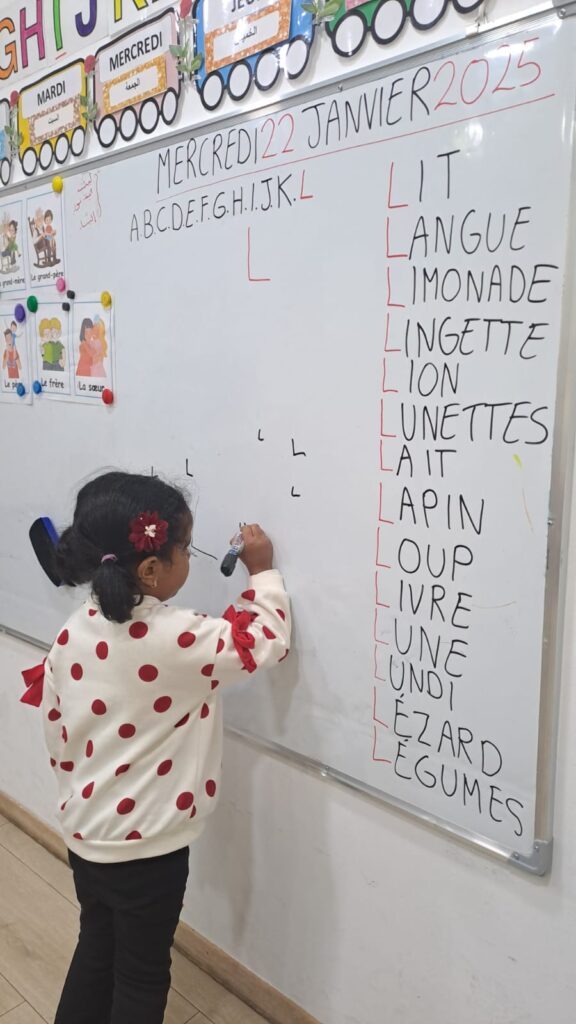 MARDI
السبت
MERCREDI
الجمعة
JEUDI
الخميس
MERCREDI 22 JANVIER 2025
A.B.C.D.E.F.G.H.I.J.K.L
L
LIT
LANGUE
LIMONADE
LINGETTE
LION
LUNETTES
LAIT
LAPIN
LOUP
LIVRE
LUNE
LUNDI
LÉZARD
LÉGUMES
La grand-mère
Le grand-père
Le père
Le frère
La sœur
L
L
L
L